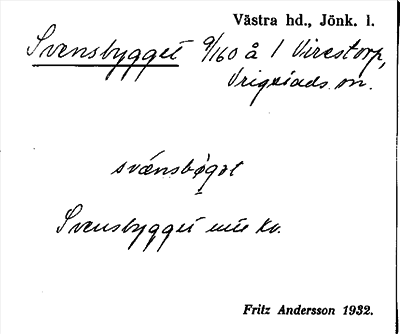 Västra hd., Jönk. l.
Svensbygget 9/160 å 1 Virestorp,
Vrigstads sn.
svǽnsbỳgət
Svensbygget enl. kv.
Fritz Andersson 1932.